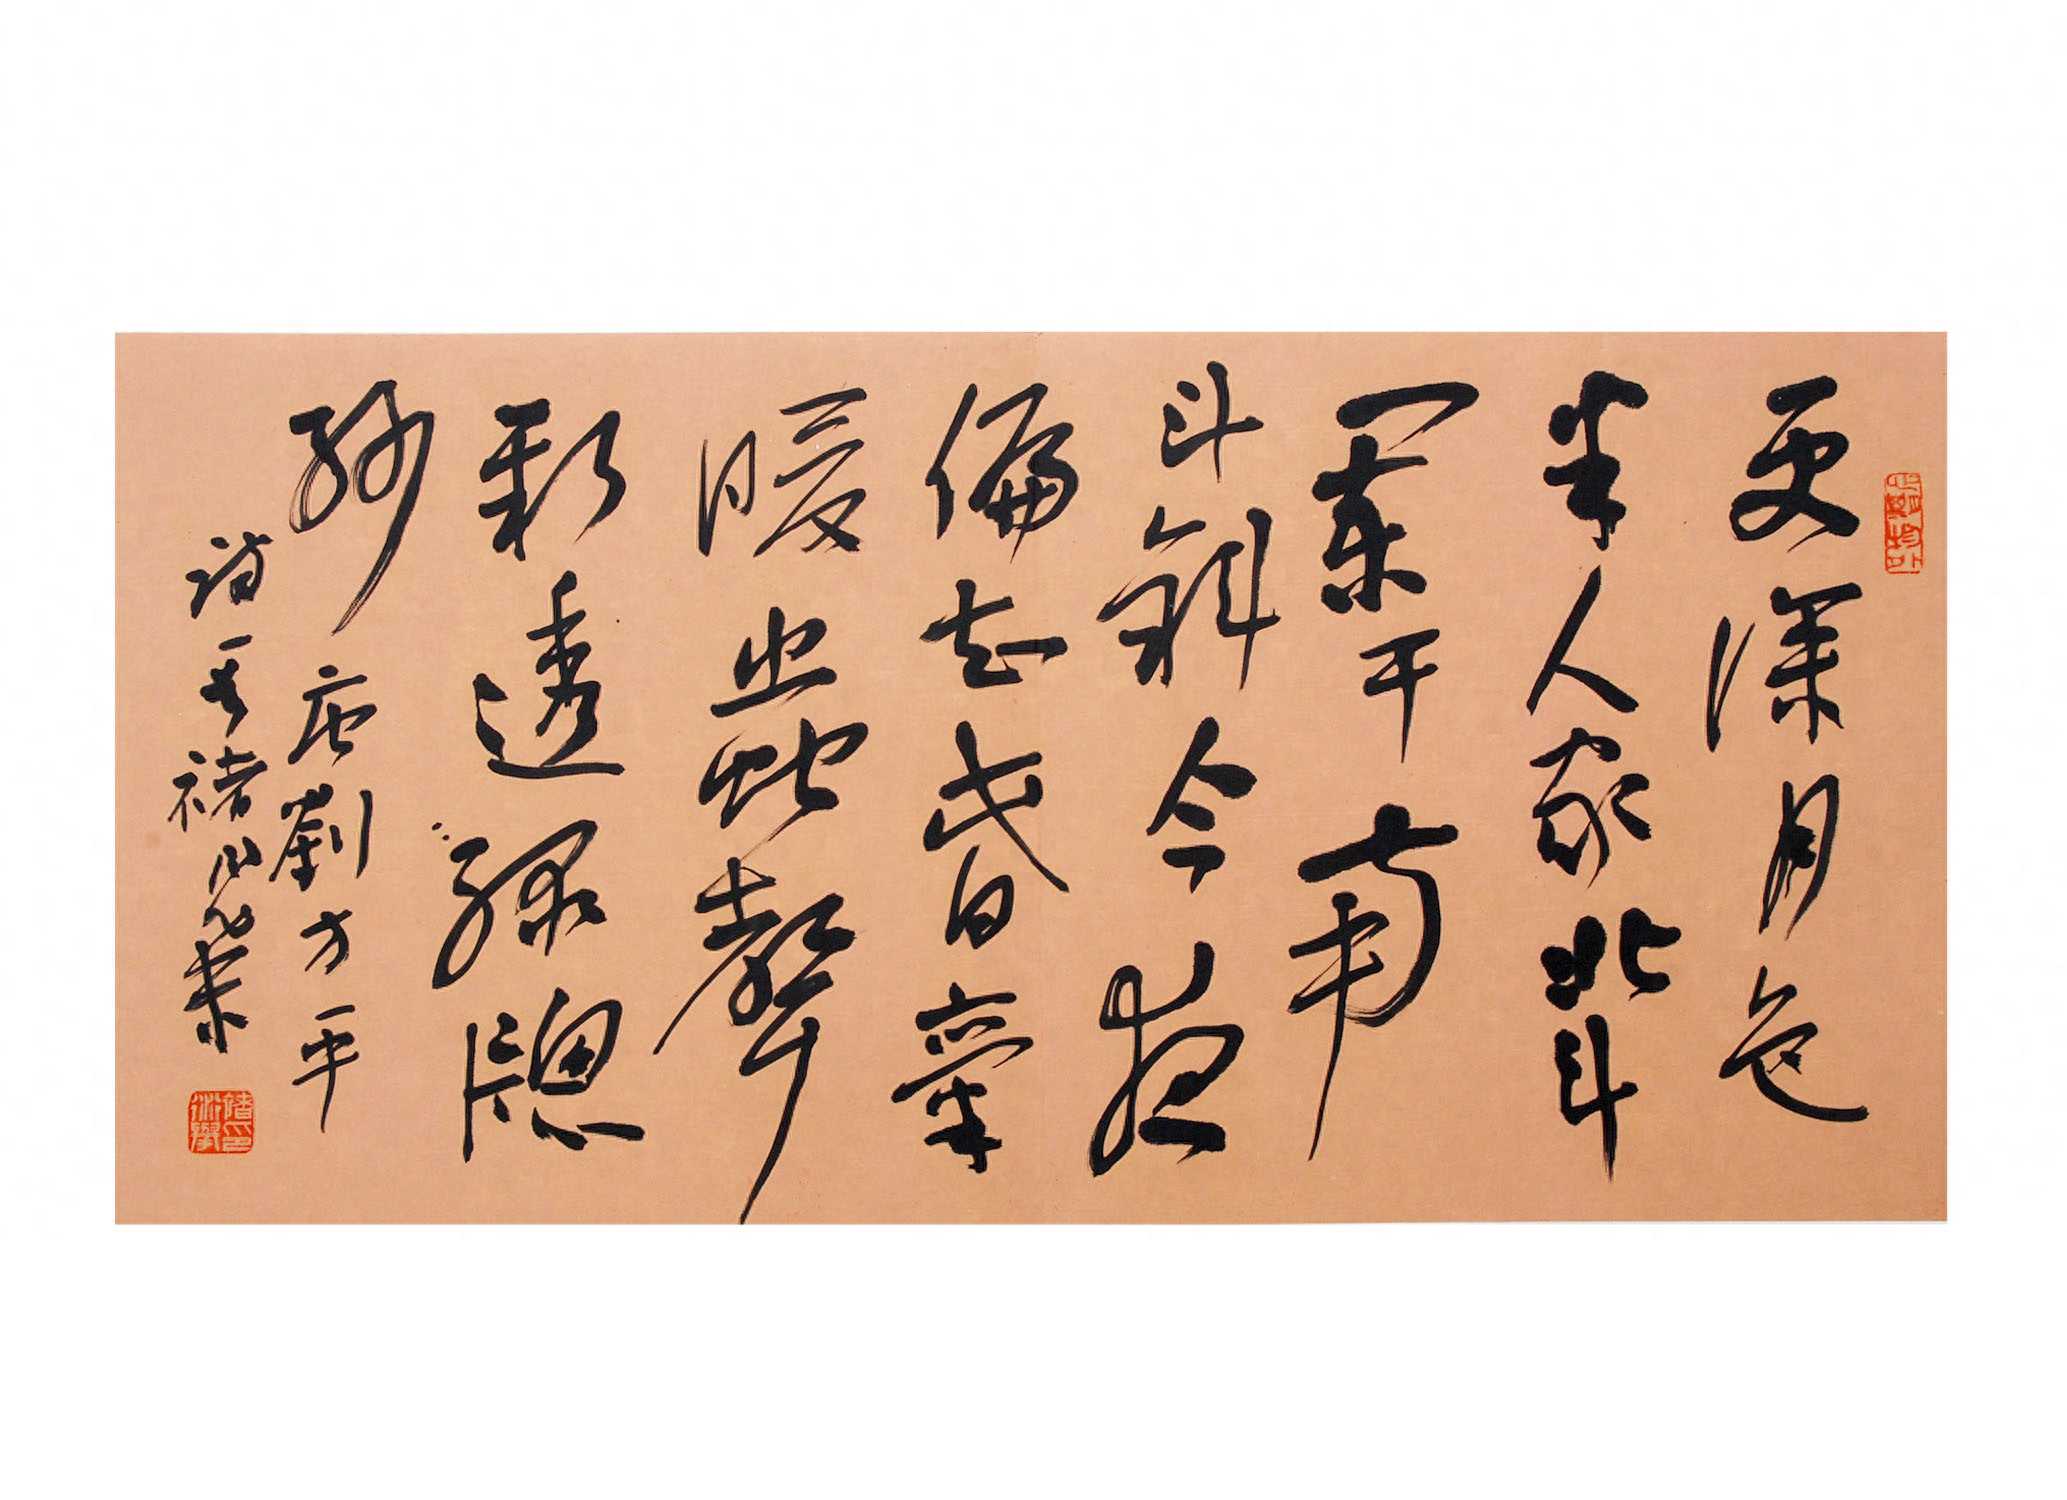 更深月色
半人家北斗
闌干南
斗斜今夜
偏知旾氣
暖蟲聲
新透綠牕
紗 唐劉方平
詩一首 褚